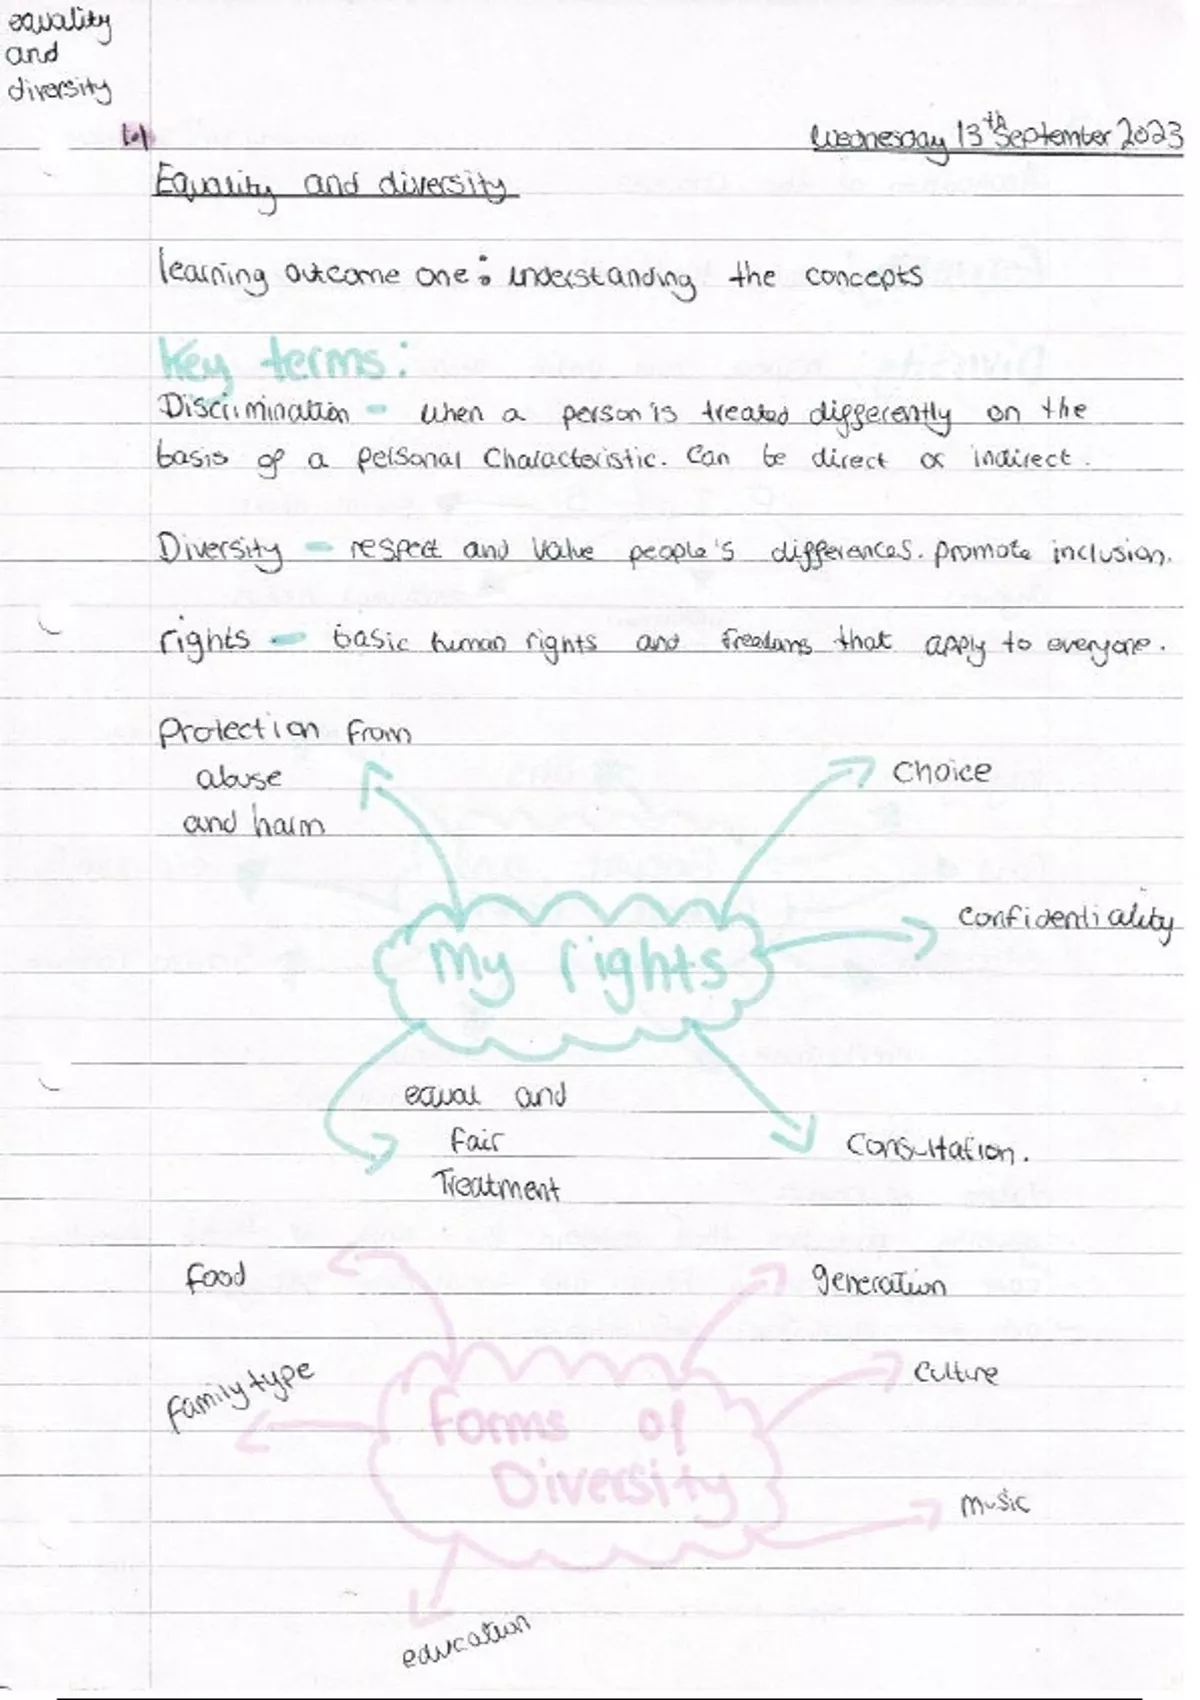 equality
and
diversity
1.1
Wednesday 13th September 2023
Equality and diversity
learning outcome one: understanding the concepts
Key terms:
Discrimination - when a person is treated differently on the
basis of a personal Characteristic. Can be direct or indirect.
Diversity - respect and value people's differences. promote inclusion.
rights - basic human rights and freedoms that apply to everyone.
Protection from
abuse
and harm
Choice
Confidentiality
My rights
equal and
fair
Treatment
Consultation.
food
generation
family type
Culture
Forms of
Diversity
music
education